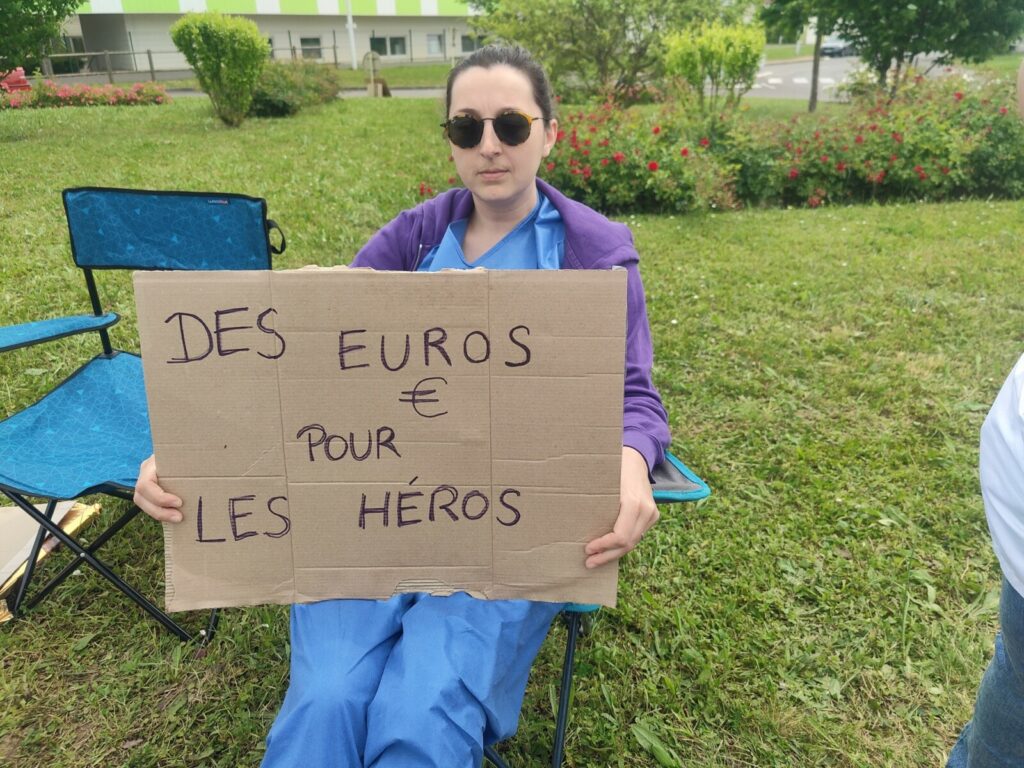 DES EUROS
€
POUR
LES HÉROS